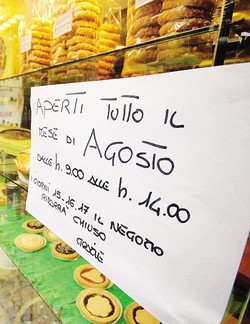 APERTI TUTTO IL
MESE DI AGOSTO
DALLE h. 9.00 ALLE h. 14.00
I GIORNI 15-16-17 IL NEGOZIO
RIMARRÀ CHIUSO